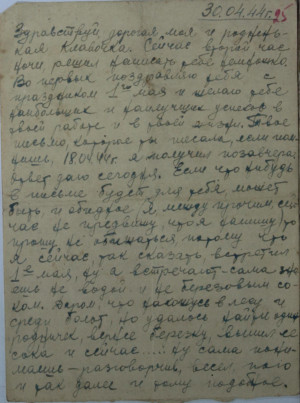 30.04.44г. 25
Здравствуй, дорогая моя и
кая Клавочка. Сейчас второй час
ночи, решил написать тебе
Во первых поздравляю тебя с
праздником 1го мая и желаю тебе
наибольших и наилучших успехов в
твоей работе и в твоей жизни. Твое
письмо, которое ты писала, если пом-
нишь, 18.04.44г. я получил позавчера,
ответ даю сегодня. Если что нибудь
в письме будет для тебя может
быть и обидное я, между прочим, сей
час не предвижу, что я напишу, то
прошу не обижаться, потому что
я сейчас, так сказать, встретил
1ое мая, ну а встречают сама зна
ешь не водой и не березовым со-
ком. Верно, что нахожусь в лесу и
среди болот, но удалось найти один
родничек, вернее березку, выпил ее
сока и сейчас ....: ну сама пони-
маешь - разговорчив, весел
и так далее и тому подобное.